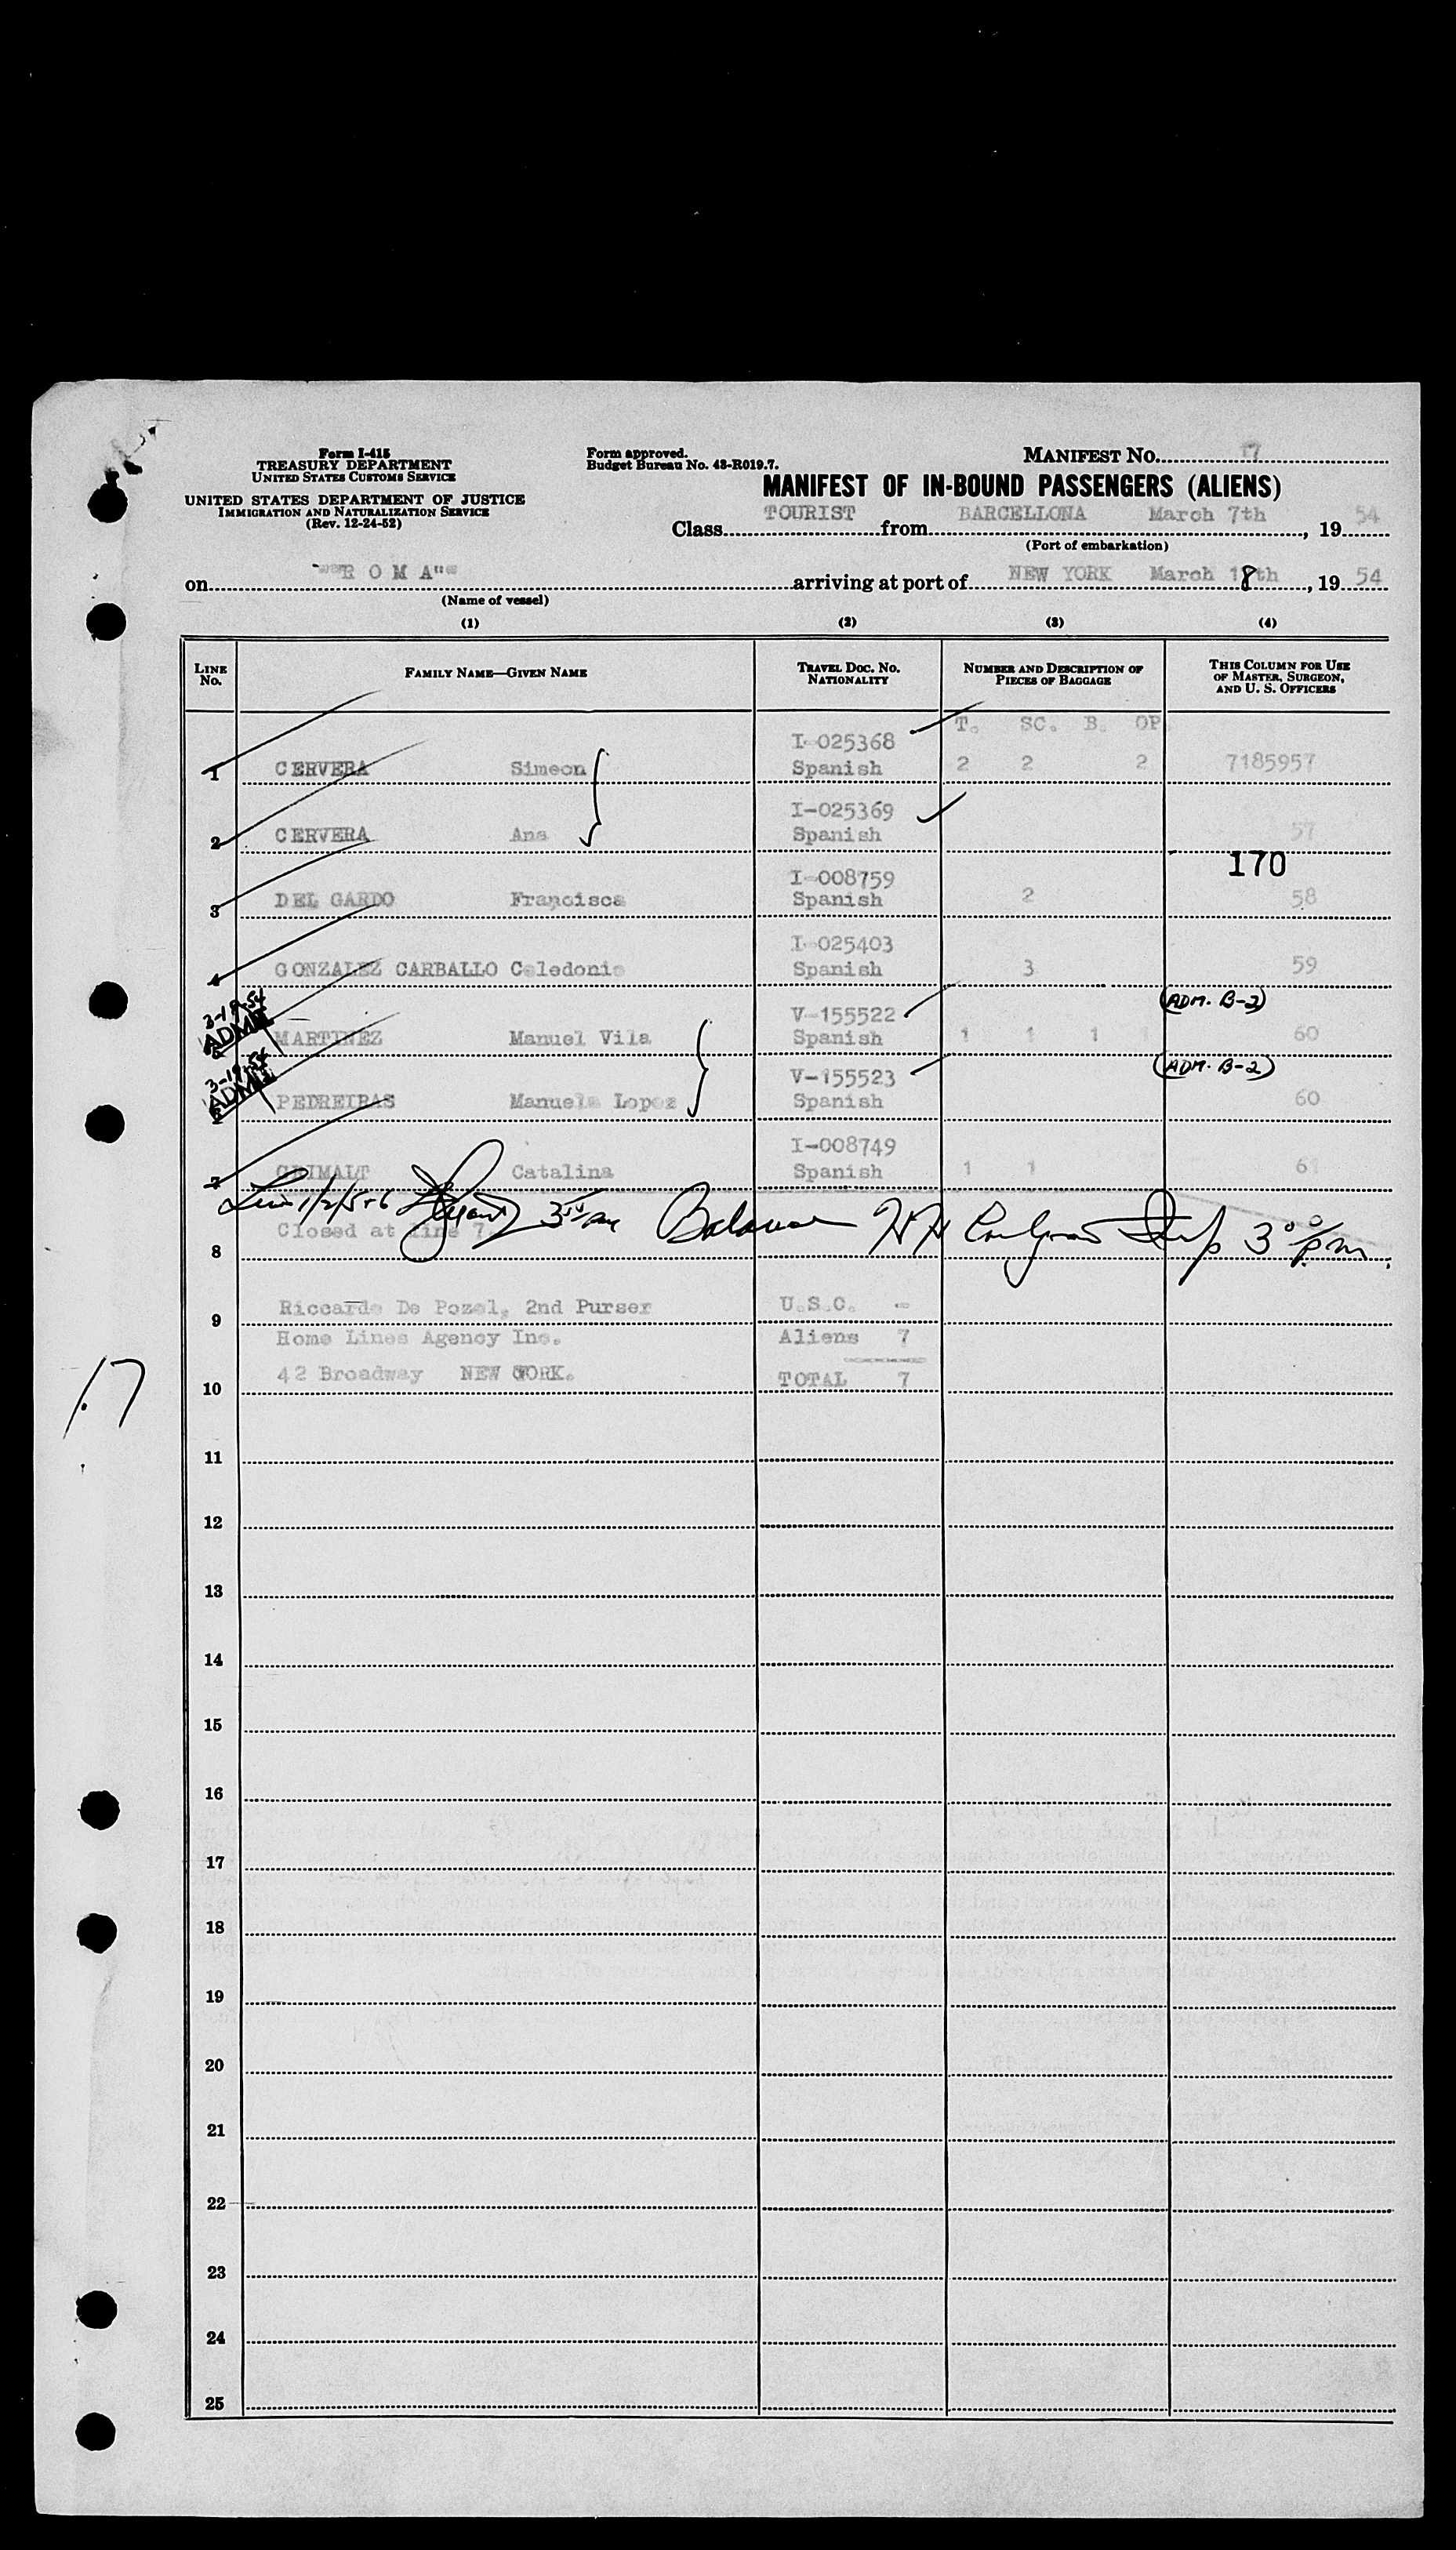 Form I-415
TREASURY DEPARTMENT
UNITED STATES CUSTOMS SERVICE
UNITED STATES DEPARTMENT OF JUSTICE
IMMIGRATION AND NATURALIZATION SERVICE
(Rev. 12-24-52)
Form approved.
Budget Bureau No. 43-R019.7.
MANIFEST No. 17
MANIFEST OF IN-BOUND PASSENGERS (ALIENS)
Class TOURIST from BARCELLONA March 7th, 19 54
(Port of embarkation)
on "R O M A" arriving at port of NEW YORK March 18th, 19 54
(Name of vessel)
(1) (2) (3) (4)
LINE No. FAMILY NAME—GIVEN NAME TRAVEL DOC. NO. NATIONALITY NUMBER AND DESCRIPTION OF PIECES OF BAGGAGE THIS COLUMN FOR USE OF MASTER, SURGEON, AND U. S. OFFICERS
T. SC. B. OP
I-025368
1 CERVERA Simeon Spanish 2 2 2 7185957
I-025369
2 CERVERA Ana Spanish 57
170
I-008759
3 DEL GARDO Francisca Spanish 2 58
I-025403
4 GONZALEZ CARBALLO Celedonio Spanish 3 59
3-19-54 V-155522 (ADM. B-2)
ADMIT MARTINEZ Manuel Vila Spanish 1 1 1 60
3-19-54 V-155523 (ADM. B-2)
ADMIT PEDREIRAS Manuela Lopez Spanish 60
I-008749
7 GRIMALT Catalina Spanish 1 1 61
Line 1/2/5+6 3 pm Balance Insp 3 00 pm.
Closed at line 7
8
Riccardo De Pozel, 2nd Purser U.S.C. -
9
Home Lines Agency Inc. Aliens 7
42 Broadway NEW YORK. TOTAL 7
10
17
11
12
13
14
15
16
17
18
19
20
21
22
23
24
25